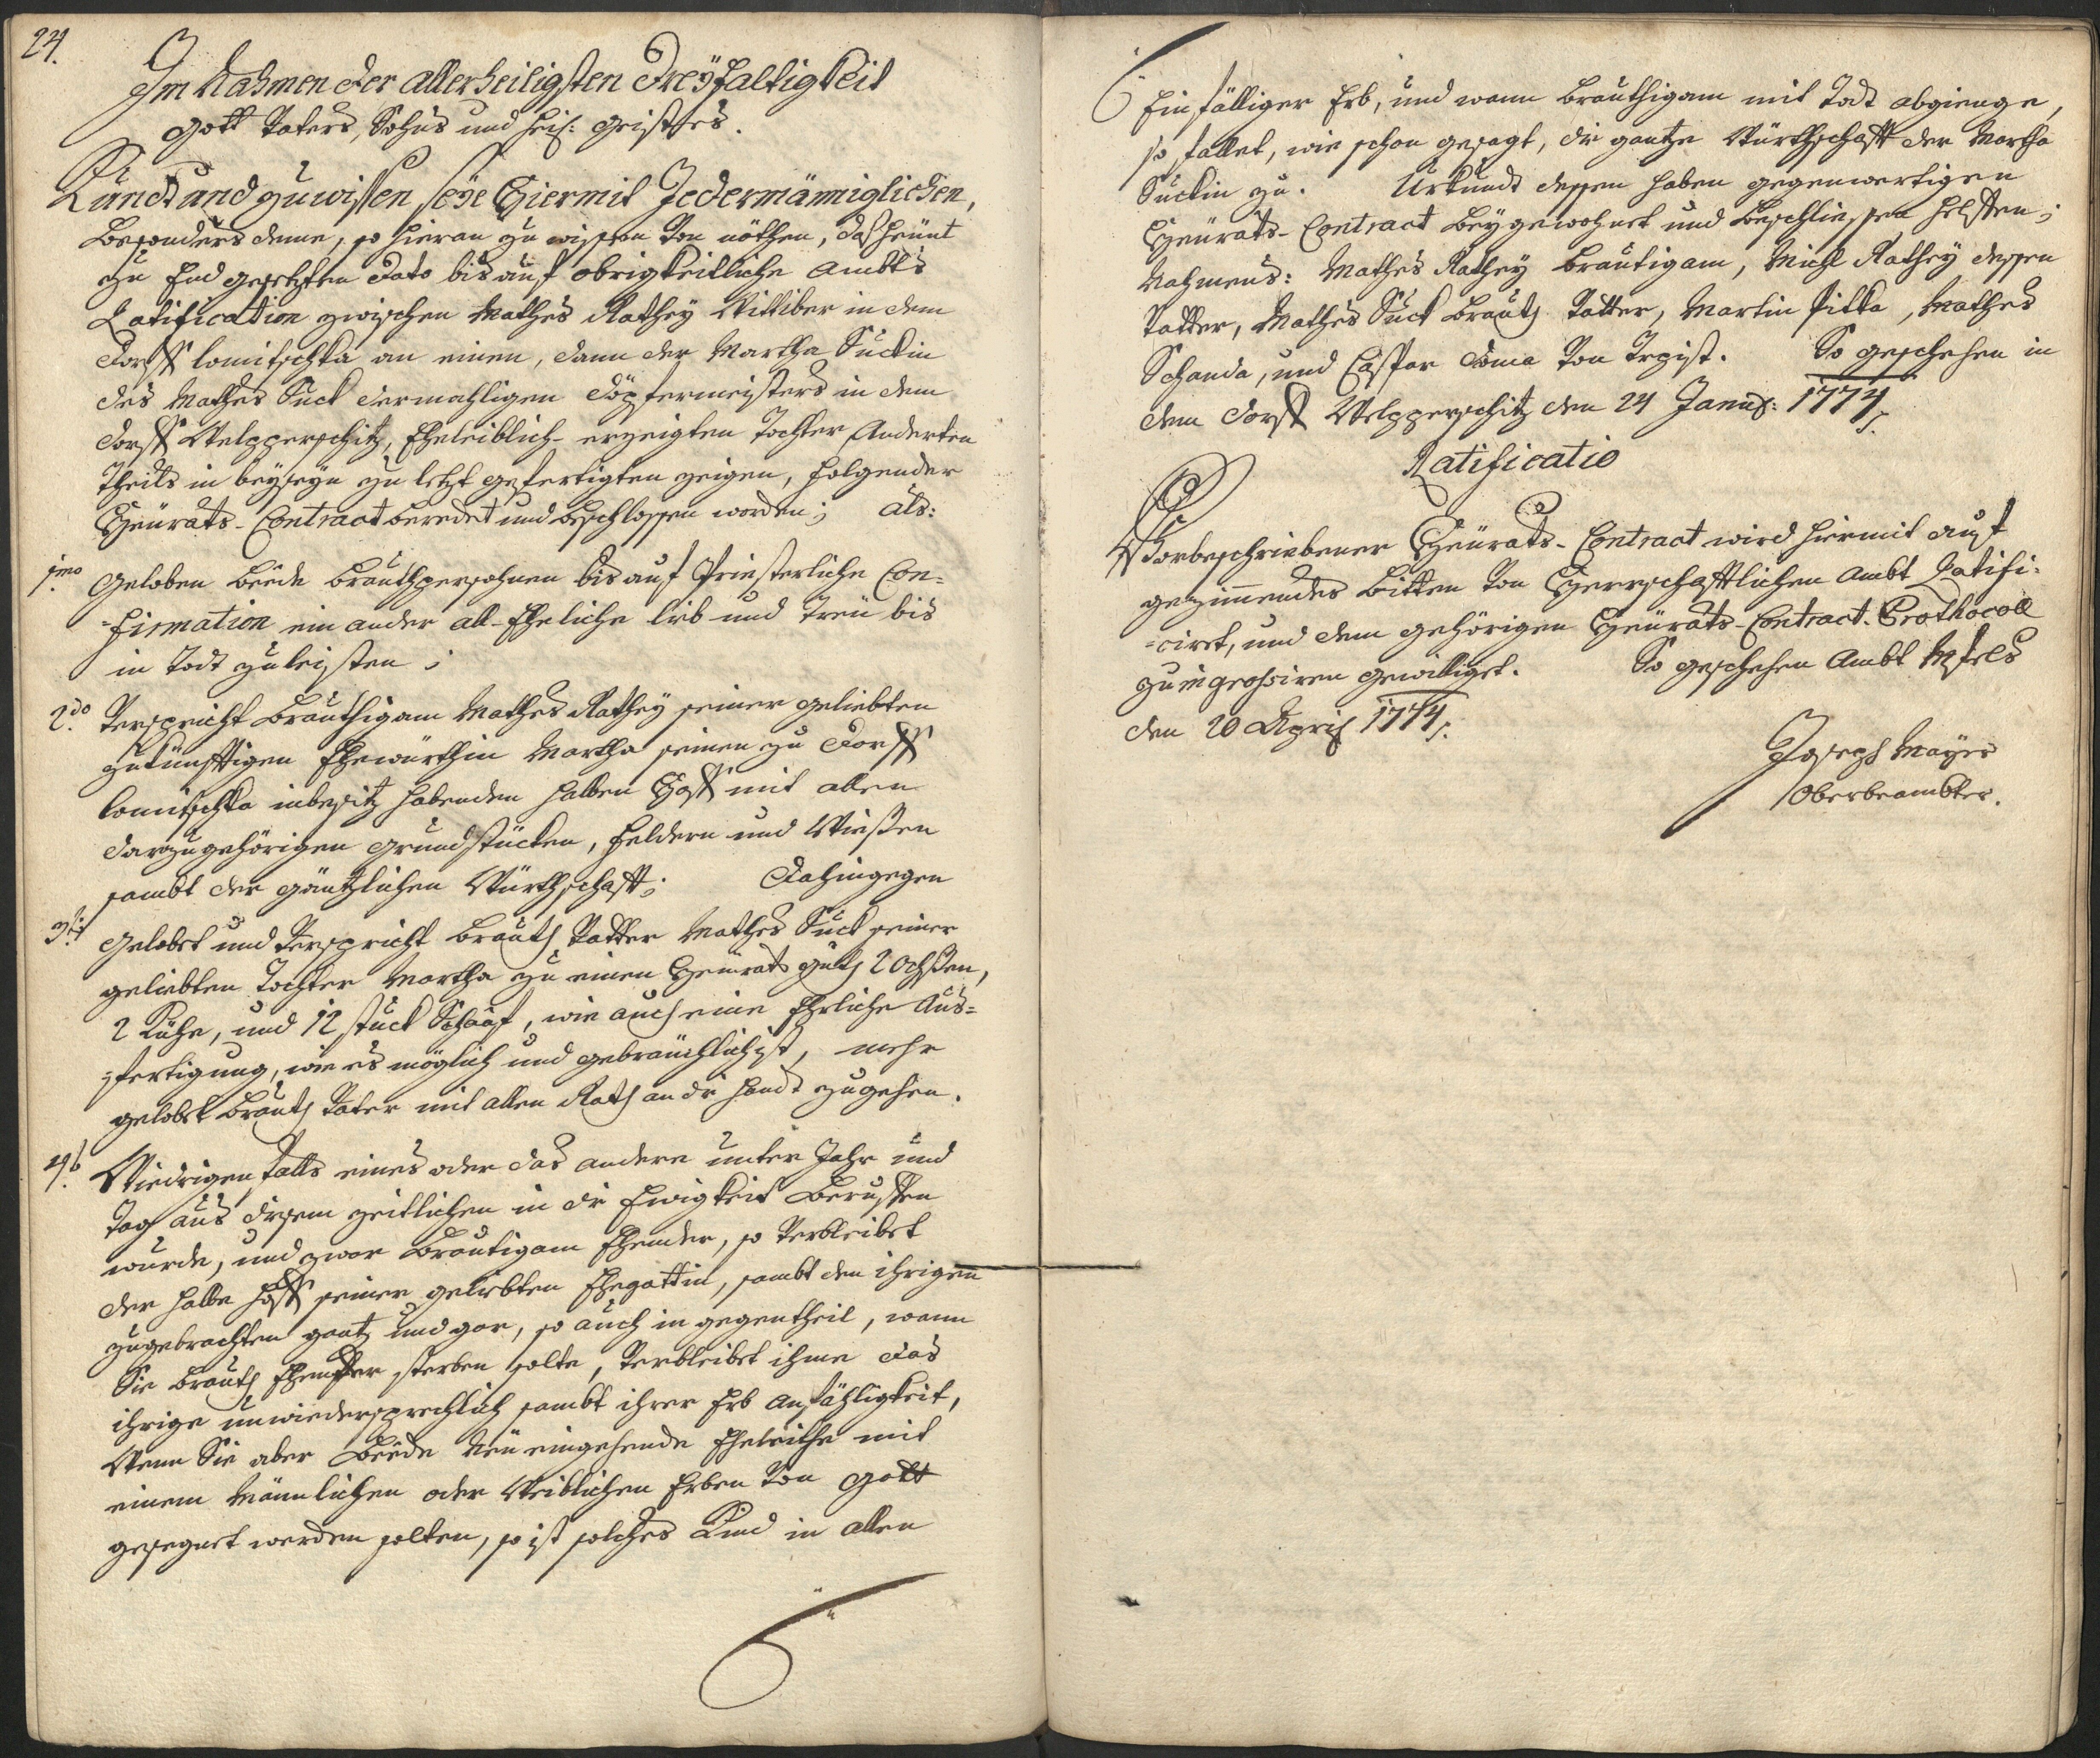 24.
Im Nahmen der allerheiligsten Dreÿfaltigkeit
Gott Vaters, Sohns und heil: Geistes.
Kundt und zu wissen seÿe Hiermit Jedermänniglichen,
besonders deme, so hieran zu wissen von nöthen, daß heünt
zu End gesetzten Dato bis auf obrigkeitliche Ambts
Ratification zwischen Mathes Rathey Wittiber in dem
Dorff Lomitschka an einen, dann der Martha Suckin
des Mathes Suck dermahligen Töpfermeisters in dem
Dorff Welpperschitz, Eheleiblich-erzeigten Tochter Anderten
Theils in beÿseyn zu letzt gefertigten zeigen, folgender
Heürats-Contract beredet und beschlossen worden; als:
1mo Geloben beede brauthpersohnen bis auf Priesterliche Con=
=firmation ein ander all-Eheliche lieb und treü bis
in Todt zu leisten;
2do Verspricht bräuthigam Mathes Rathey seiner geliebten
zukünfftigen Ehewürthin Martha seinen zu Dorff
Lomitschka inbesitz habenden halben Hoff mit allen
darzugehörigen grundstücken, feldern und Wießen
sambt der gäntzlichen Würthschafft; Dahingegen
3tio Gelobet und Verspricht brauth Vatter Mathes Suck seiner
geliebten Tochter Martha zu einen Heürath guth 2 Ochsßen,
2 Kühe, und 12 stuck Schaaf, wie auch eine Ehrliche Aus=
=fertigung, wie es möglich und gebräuchlich ist, mehr
gelobet brauth Vater mit allen Rath an die Handt zugehen.
4to Wiedrigen Falls eines oder das andere unter Jahr und
Tag aus diesem zeitlichen in die Ewigkeit Beruffen
wurde, und zwar Bräutigam Ehender, so Verbleibet
der halbe Hoff seiner geliebten Ehegattin, sambt den ihrigen
zugebrachten gantz und gar, so auch in gegentheil, wann
Sie brauth Ehender sterben solte, Verbleibet ihme das
ihrige unwiedersprechlich sambt ihrer Erb anfähligkeit,
Wenn Sie aber Beede Neü eingehende Eheleithe mit
einem Männlichen oder Weiblichen Erben Von Gott
gesegnet werden solten, so ist solches Kind in allen
Einfälliger Erb, und wann bräuthigam mit Todt abgienge,
so fallet, wie schon gesagt, die gantze Würthschafft der Martha
Suckin zu. Urkundt dessen haben gegenwertigen
Heürats-Contract beÿgewohnet und beschliessen helffen;
Nahmens: Mathes Rathey bräutigam, Michl Rathey dessen
Vatter, Mathes Suck brauth Vatter, Martin Pitka, Mathes
Schanda, und Caspar Toma Von Trpist. So geschehen in
dem Dorff Welpperschitz den 24 Januar: 1774.
Ratificatio
Vorbeschriebener Heürats-Contract wird hiermit auf
geziemmendes bitten Von Herrschafftlichen Ambt Ratifi=
=ciret, und dem gehörigen Heürats-Contract-Prothocoll
zu ingrossiren gewilliget. So geschehen Ambt Wesels
den 20 April 1774.
Joseph Mayer
Oberbeambter.